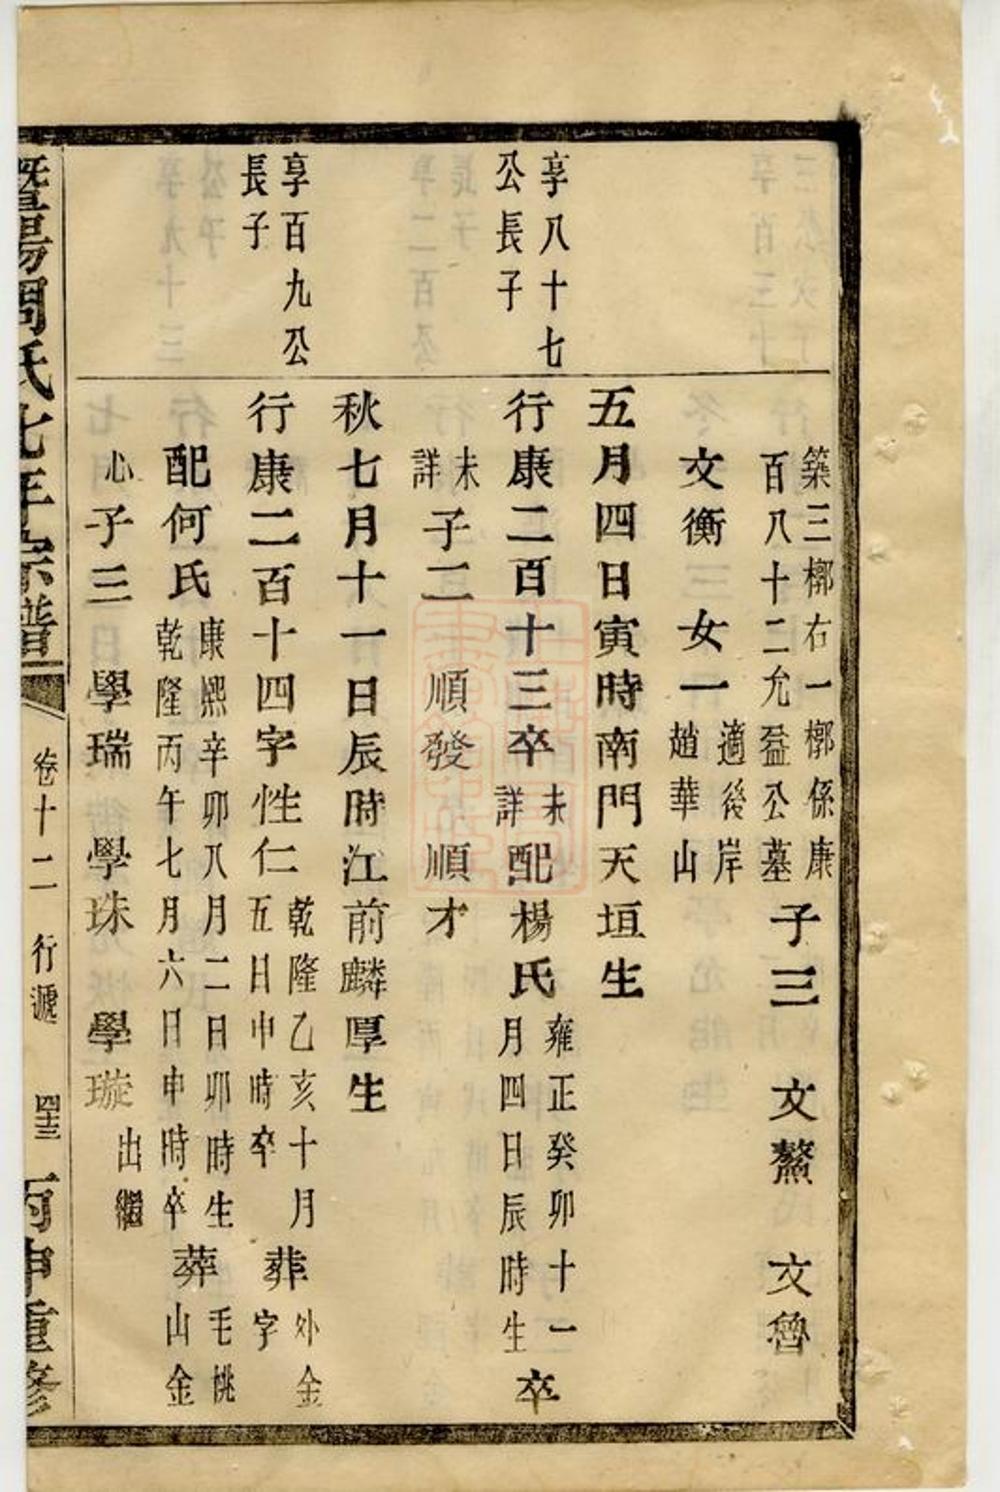 築三槨右一槨係康
百八十二允益公墓
子三 文鰲 文魯
文衡 女一
適後岸
趙華山
享八十七
公長子
五月四日寅時南門天垣生
行康二百十三卒
未
詳
配楊氏
雍正癸卯十一
月四日辰時生
卒
未
詳
子二 順發 順才
享百九公
長子
秋七月十一日辰時江前麟厚生
行康二百十四字性仁
乾隆乙亥十月
五日申時卒
葬
外金
字
配何氏
康熙辛卯八月二日卯時生
乾隆丙午七月六日申時卒
葬
毛桃
山金
心
子三 學瑞 學珠 學璇
出繼
暨陽周氏七年宗譜 卷十二 行遞 丙申重修